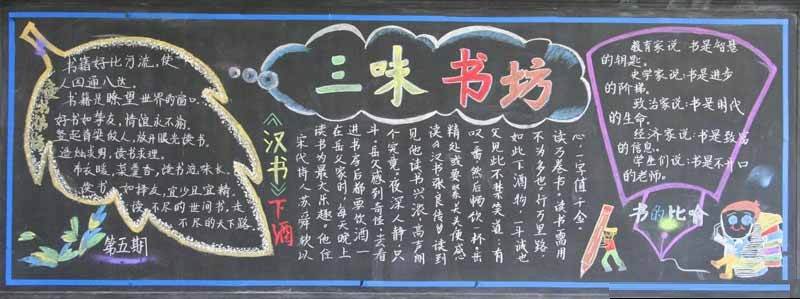 三味书坊
书籍好比河流,使
人四通八达。
书籍是瞭望世界的窗口。
好书如挚友,情谊永不渝。
竖起脊梁做人,放开眼光读书。
造烛求明,读书求理。
布衣暖,菜羹香,读书滋味长。
读书如择友,宜少且宜精。
读不尽的世间书,走
不尽的天下路。
第五期
《汉书》下酒
宋代诗人苏舜钦以
读书为最大乐趣。他住
在岳父家时,每天晚上
进书房后都要饮酒一
斗。岳父感到奇怪,去看
个究竟。夜深人静,只
见他读书兴浓,高声朗
读《汉书张良传》,读到
精处或要紧关头便感
叹一番,然后畅饮一杯。岳
父见此不禁笑道:有
如此下酒物,一斗诚也
不为多也。行万里路,
读万卷书。读书需用
心,一字值千金。
教育家说:书是智慧
的钥匙。
史学家说:书是进步
的阶梯。
政治家说:书是时代
的生命。
经济家说:书是致富
的信息。
学生们说:书是不开口
的老师。
书的比喻